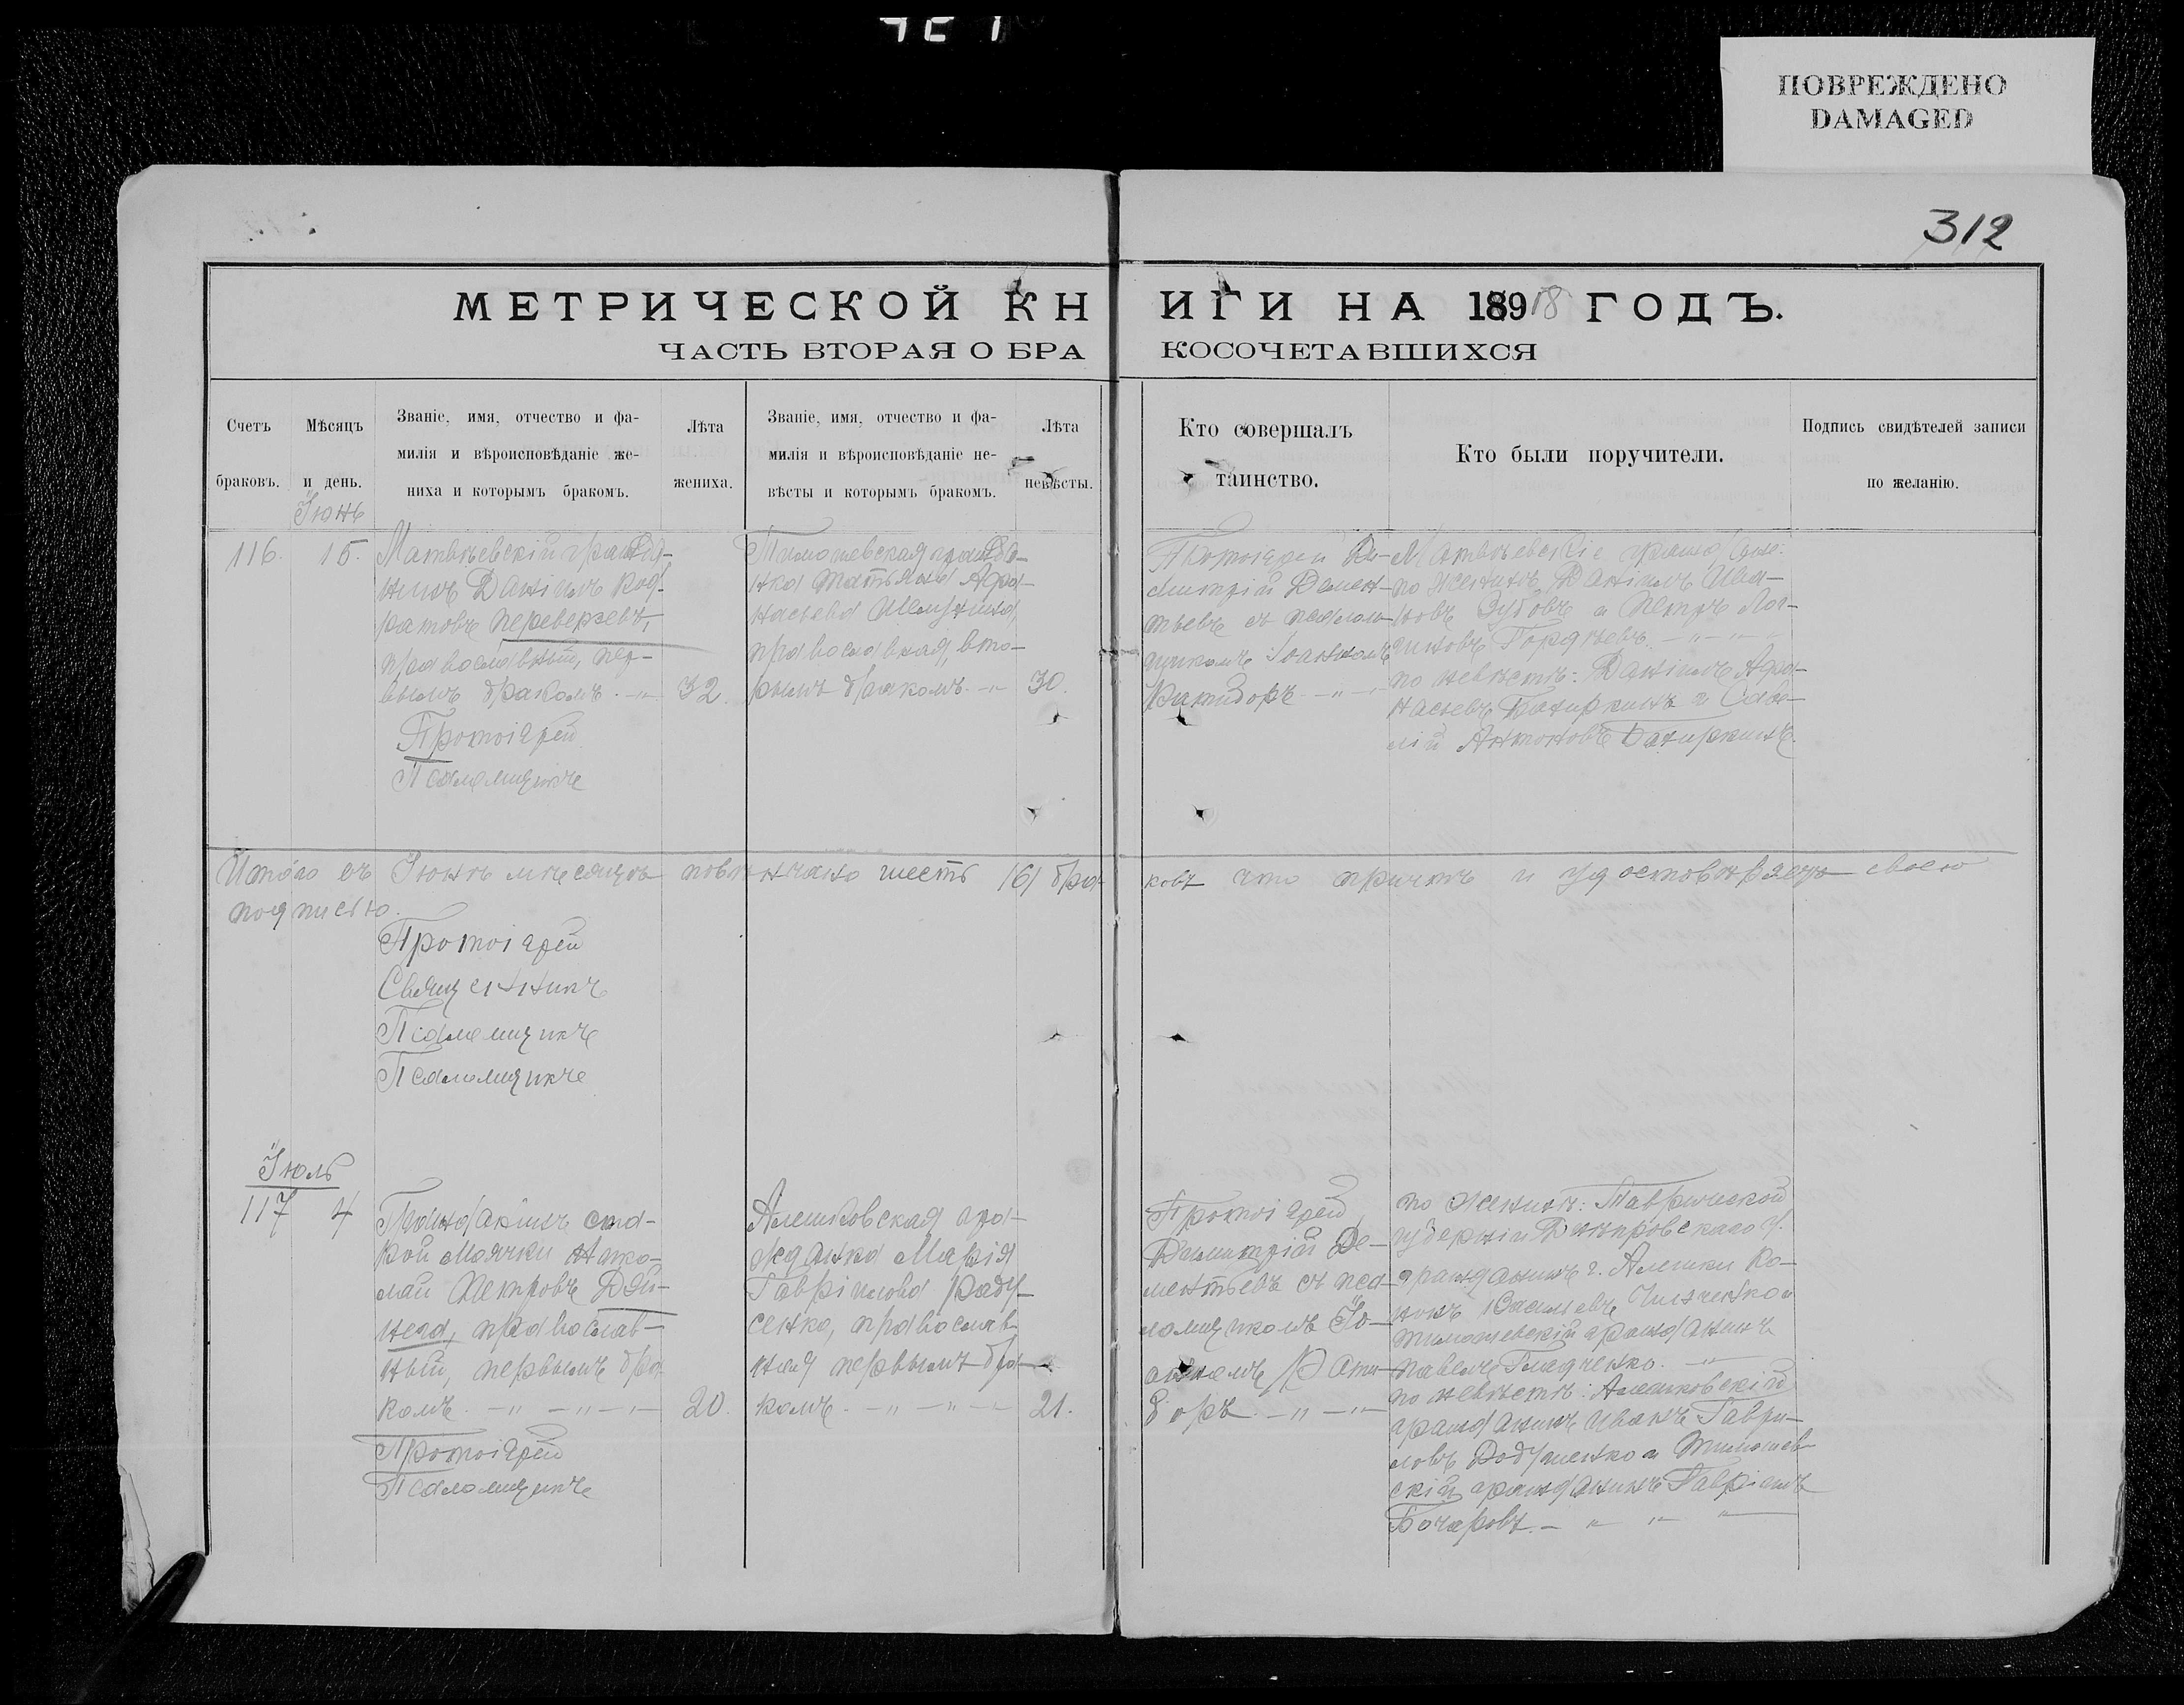 ПОВРЕЖДЕНО
DAMAGED
312
МЕТРИЧЕСКОЙ КНИГИ НА 18918 ГОДЪ.
ЧАСТЬ ВТОРАЯ О БРАКОСОЧЕТАВШИХСЯ
Счетъ браковъ.
Мѣсяцъ и день.
Званіе, имя, отчество и фа-
милія и вѣроисповѣданіе же-
ниха и которымъ бракомъ.
Лѣта жениха.
Званіе, имя, отчество и фа-
милія и вѣроисповѣданіе не-
вѣсты и которымъ бракомъ.
Лѣта невѣсты.
Кто совершалъ
таинство.
Кто были поручители.
Подпись свидѣтелей записи
по желанію.
Іюнь
116. 15.
Матвѣевскій гражда-
нинъ Даніилъ Код-
ратовъ Переверзевъ,
православный, пер-
вымъ бракомъ. -"-
32.
Протоіерей
Псаломщикъ
Тимошевская гражда-
нка Татьяна Афа-
насьева
православная, вто-
рымъ бракомъ. -"
30.
Протоіерей Ди-
митрій Демен-
тьевъ съ псалом-
щикомъ Іоанномъ
Ратидоръ -"-
Матвѣевскіе граждане:
по женихѣ, Даніилъ Ива-
новъ Зубовъ и Петръ Лог-
иновъ Гордѣевъ -"-"-
по невѣстѣ: Даніилъ Афа-
насьевъ Батиркинъ и Сав-
лій Антоновъ Батиркинъ.
Итого въ Іюнѣ мѣсяцѣ повѣнчано шесть /6/ бра-
ковъ что причтъ и удостовѣряетъ своею
подписью.
Протоіерей
Священникъ
Псаломщикъ
Псаломщикъ
Іюль
117 4
Гражданинъ ста-
рой Маячки Нико-
лай Петровъ Дей-
нега, православ-
ный, первымъ бра-
комъ. -"-"-
20.
Протоіерей
Псаломщикъ
Алешковская гра-
жданка Марія
Гавріилова Раду-
сенко, православ-
ная первымъ бра-
комъ. -"-"-
21.
Протоіерей
Димитрій Де-
ментьевъ съ пса-
ломщикомъ Іо-
анномъ Рати-
доръ. -"-"-
по женихѣ: Таврической
губерніи Днѣпровскаго у.
гражданинъ г. Алешки Ко-
нонъ Васильевъ и
Тимошевскій гражданинъ
Павелъ Гладченко. -"-
по невѣстѣ: Алешковскій
гражданинъ Иванъ Гаври-
ловъ и Тимошев-
скій гражданинъ Гавріилъ
Бочаровъ. - " " "